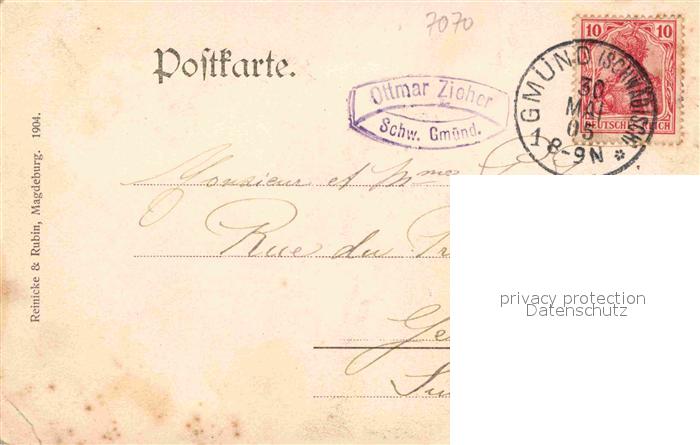 7070
Postkarte.
Ottmar Zieher
Schw. Gmünd.
10 10
DEUTSCHES REICH
GMÜND (SCHWÄB.)
30
MAI
05
8-9N
1 *
Monsieur et Mme
Rue du
privacy protection
Datenschutz
Reinicke & Rubin, Magdeburg. 1904.